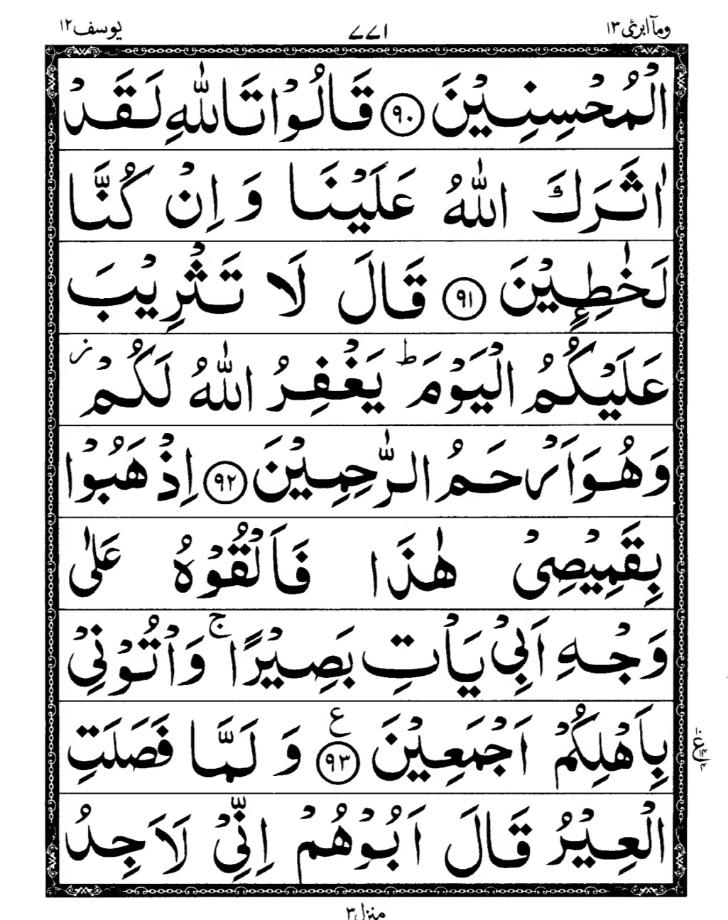 وَمَآ اُبَرِّئُ ١٣
٧٧١
يوسف ١٢
الْمُحْسِنِيْنَ ﴿٩٠﴾ قَالُوْا تَاللّٰهِ لَقَدْ
اٰثَرَكَ اللّٰهُ عَلَيْنَا وَ اِنْ كُنَّا
لَخٰطِـِٕيْنَ ﴿٩١﴾ قَالَ لَا تَثْرِيْبَ
عَلَيْكُمُ الْيَوْمَ ؕ يَغْفِرُ اللّٰهُ لَكُمْ ز
وَهُوَ اَرْحَمُ الرّٰحِمِيْنَ ﴿٩٢﴾ اِذْهَبُوْا
بِقَمِيْصِيْ هٰذَا فَاَلْقُوْهُ عَلٰى
وَجْهِ اَبِيْ يَاْتِ بَصِيْرًا ۚ وَاْتُوْنِيْ
بِاَهْلِكُمْ اَجْمَعِيْنَ ﴿٩٣﴾ ع وَ لَمَّا فَصَلَتِ
الْعِيْرُ قَالَ اَبُوْهُمْ اِنِّيْ لَاَجِدُ
منزل ٣